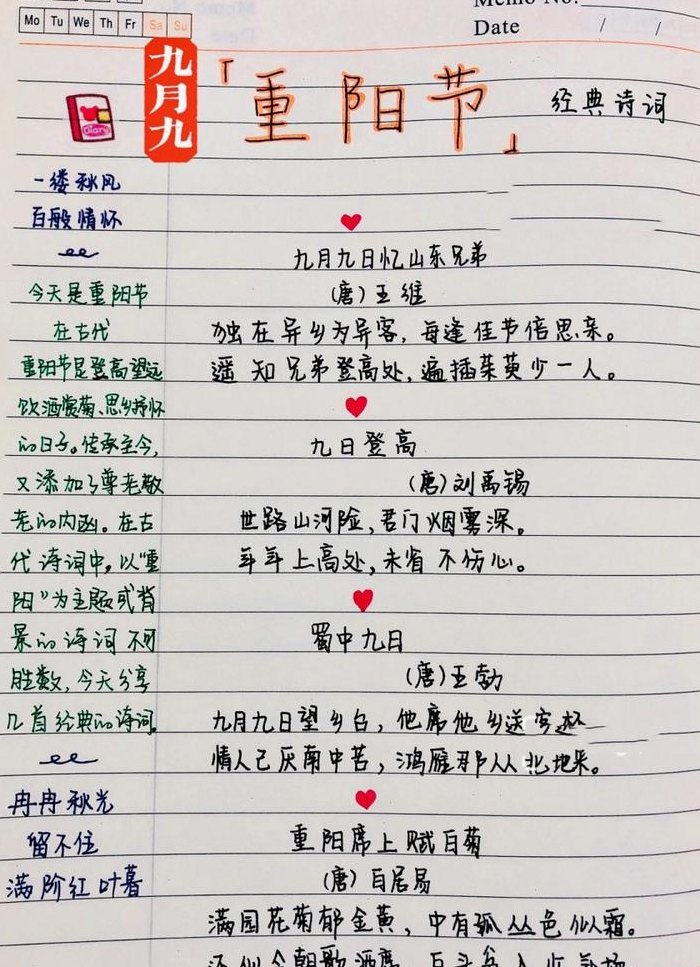 Memo No.
Mo Tu We Th Fr Sa Su
Date / /
九月九
「重阳节」
经典诗词
Diary
一缕秋风
百般情怀
今天是重阳节
在古代
重阳节是登高望远
饮酒赏菊、思乡抒怀
的日子。传承至今,
又添加了尊老敬
老的内涵。在古
代诗词中,以“重
阳”为主题或背
景的诗词不可
胜数,今天分享
几首经典的诗词。
冉冉秋光
留不住
满阶红叶暮
九月九日忆山东兄弟
(唐)王维
独在异乡为异客,每逢佳节倍思亲。
遥知兄弟登高处,遍插茱萸少一人。
九日登高
(唐)刘禹锡
世路山河险,君门烟雾深。
年年上高处,未省不伤心。
蜀中九日
(唐)王勃
九月九日望乡台,他席他乡送客杯
情人已厌南中苦,鸿雁那从北地来。
重阳席上赋白菊
(唐)白居易
满园花菊郁金黄,中有孤丛色似霜。